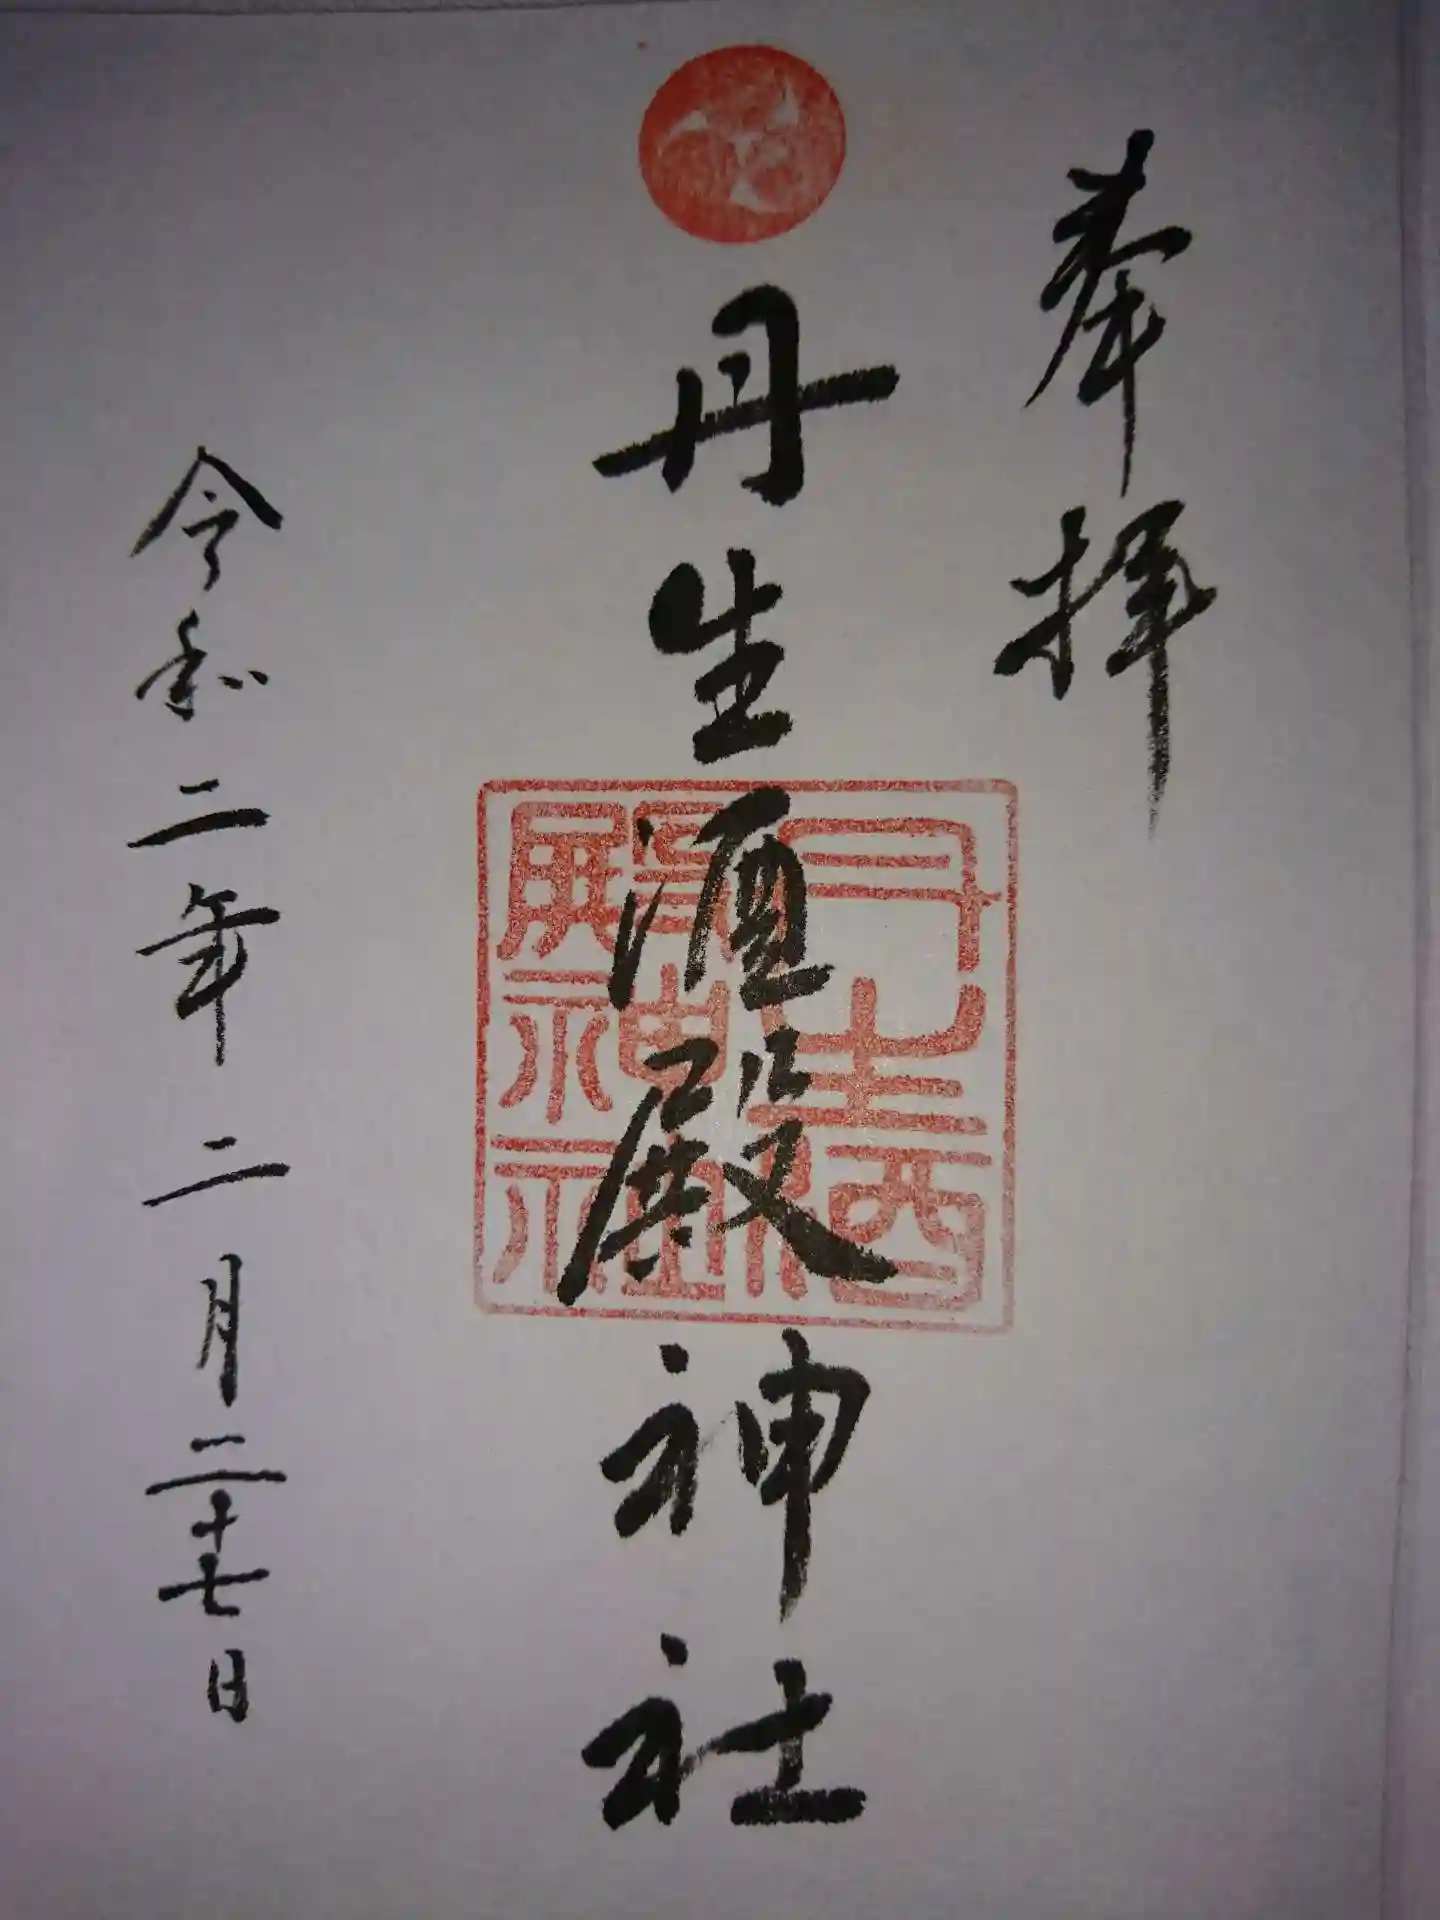 奉拝
丹生酒殿神社
丹生酒殿神社
令和二年二月二十七日